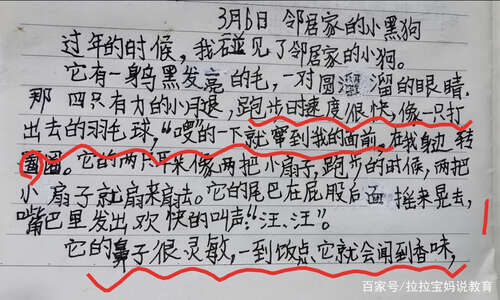 3月6日 邻居家的小黑狗
过年的时候,我碰见了邻居家的小狗。
它有一身乌黑发亮的毛,一对圆溜溜的眼睛,
那四只有力的小腿,跑步时速度很快,像一只打
出去的羽毛球,“嗖”的一下就窜到我的面前,在我身边转
圈圈。它的两只耳朵像两把小扇子,跑步的时候,两把
小扇子就扇来扇去。它的尾巴在屁股后面摇来晃去,
嘴巴里发出欢快的叫声:“汪、汪”。
它的鼻子很灵敏,一到饭点它就会闻到香味,
百家号/拉拉宝妈说教育